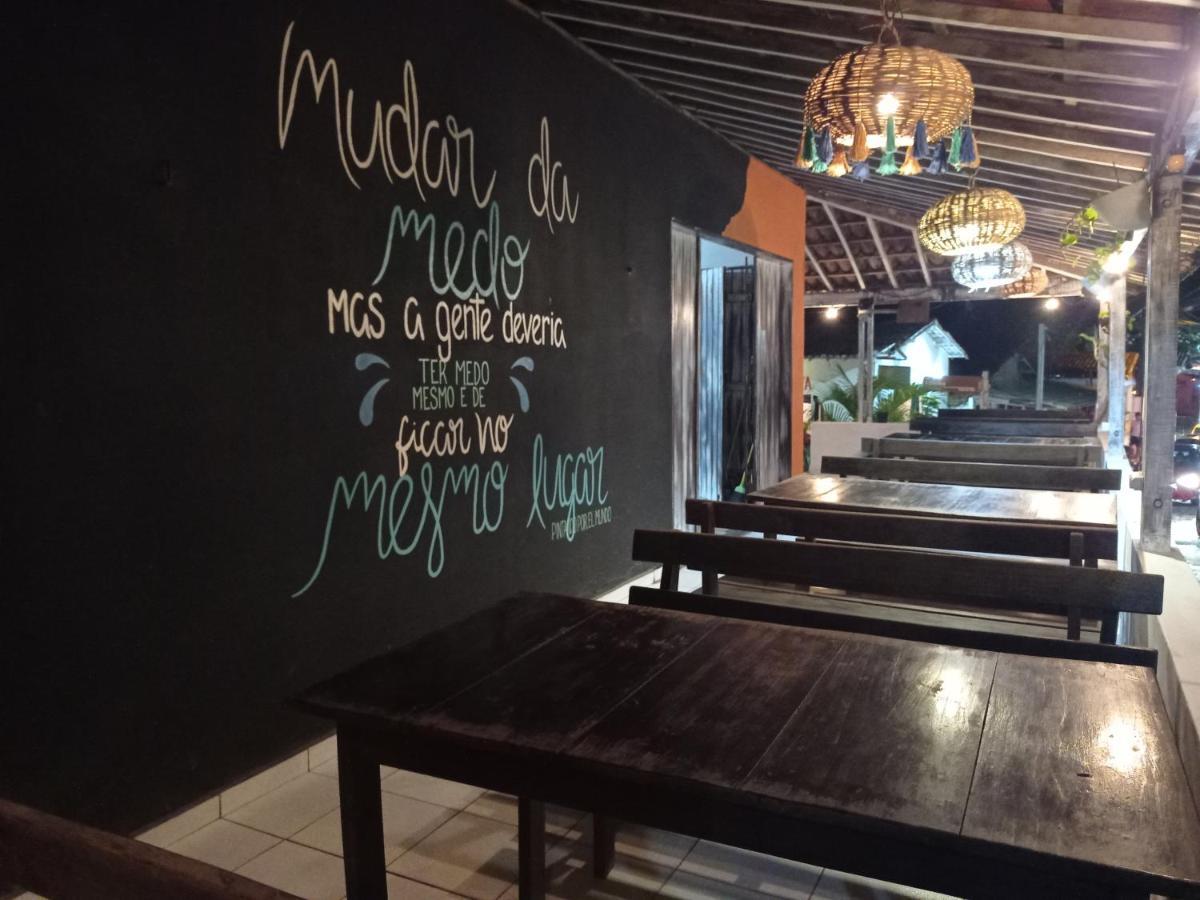 Mudar da
medo
Mas a gente deveria
TER MEDO
MESMO E DE
ficar no
mesmo lugar
POR EL MUNDO